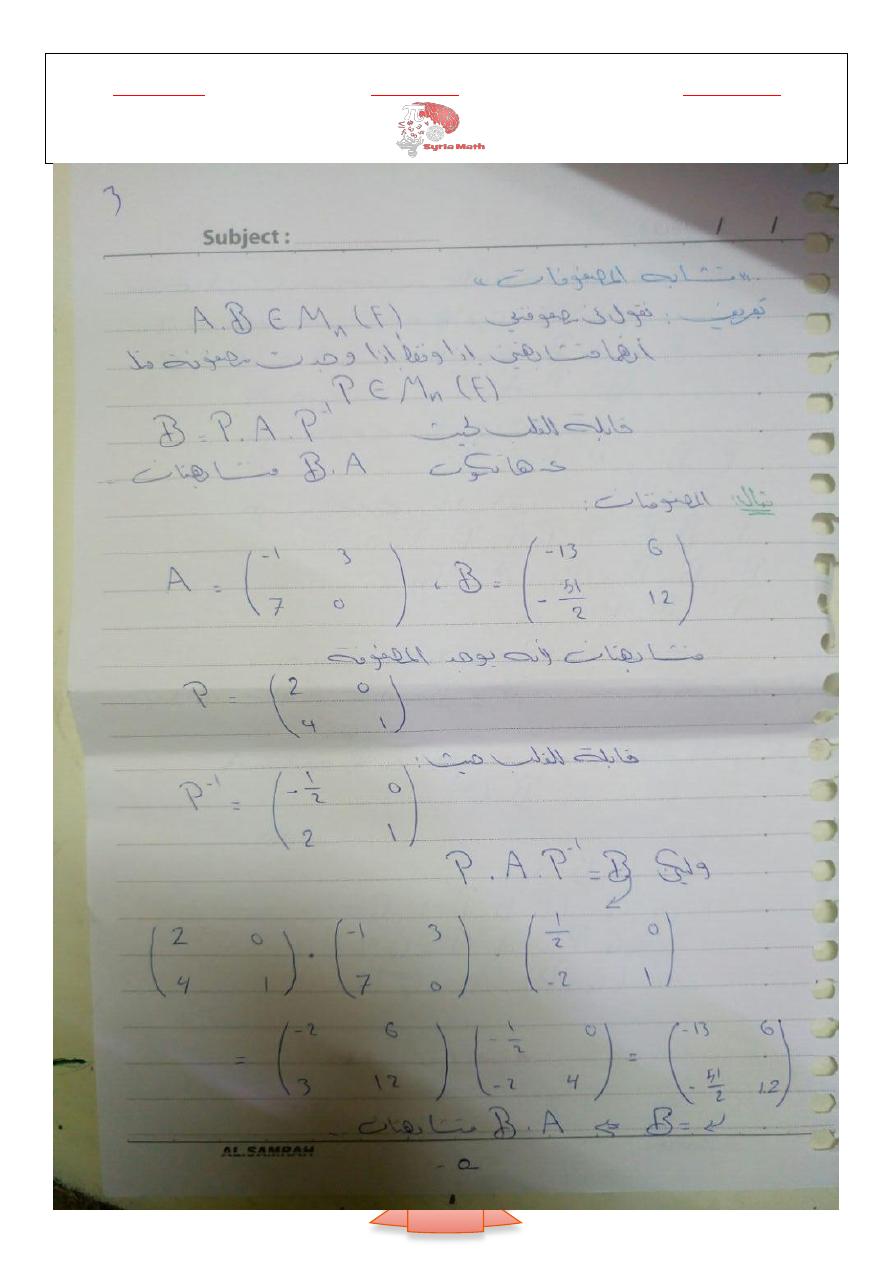 Syria Math
3
Subject :
/ /
"تشابه المصفوفات"
تعريف : نقول لمصفوفتين A.B ∈ Mn (F)
أنهما متشابهتين إذا وفقط إذا وجدت مصفوفة ما
P ∈ Mn (F)
قابلة للقلب بحيث B = P.A.P⁻¹
B.A متشابهتان
مثال: المصفوفتان :
A = (-1 3 / 7 0) , B = (-13 6 / -51/2 12)
متشابهتان لأنه يوجد المصفوفة
P = (2 0 / 4 1)
قابلة للقلب حيث :
P⁻¹ = (-1/2 0 / 2 1)
وليكن P.A.P⁻¹ = B
(2 0 / 4 1) . (-1 3 / 7 0) . (1/2 0 / -2 1)
= (-2 6 / 3 12) (-1/2 0 / -2 4) = (-13 6 / -51/2 12)
= B ⇐ B.A متشابهتان
AL.SAMRAH